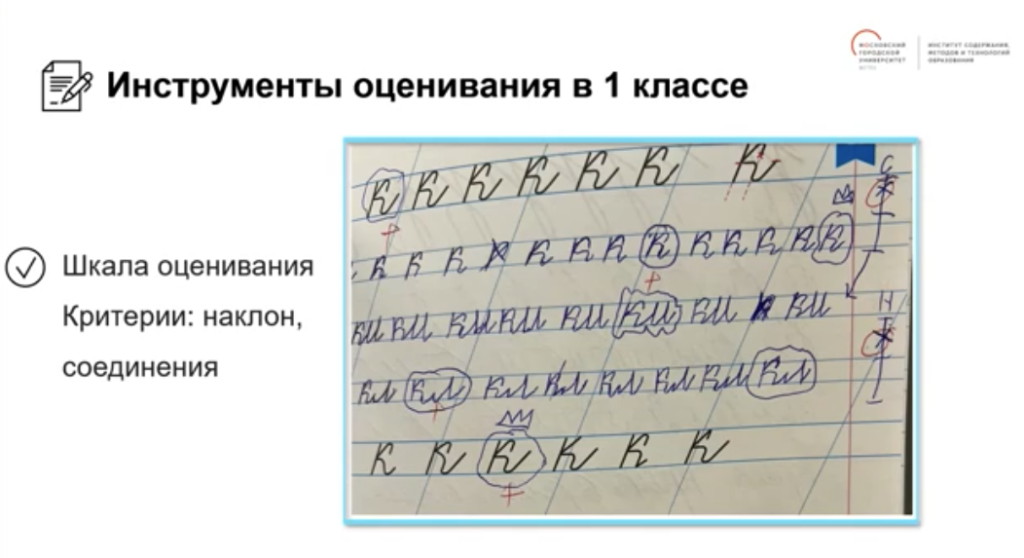 МОСКОВСКИЙ
ГОРОДСКОЙ
УНИВЕРСИТЕТ
ИНСТИТУТ СОДЕРЖАНИЯ,
МЕТОДОВ И ТЕХНОЛОГИЙ
ОБРАЗОВАНИЯ
Инструменты оценивания в 1 классе
Шкала оценивания
Критерии: наклон,
соединения
К К К К К К К
к к к к к к к к к к к к к
ки ки ки ки ки ки ки к ки
кл кл кл кл кл кл кл кл
К К К К К К
С
Н